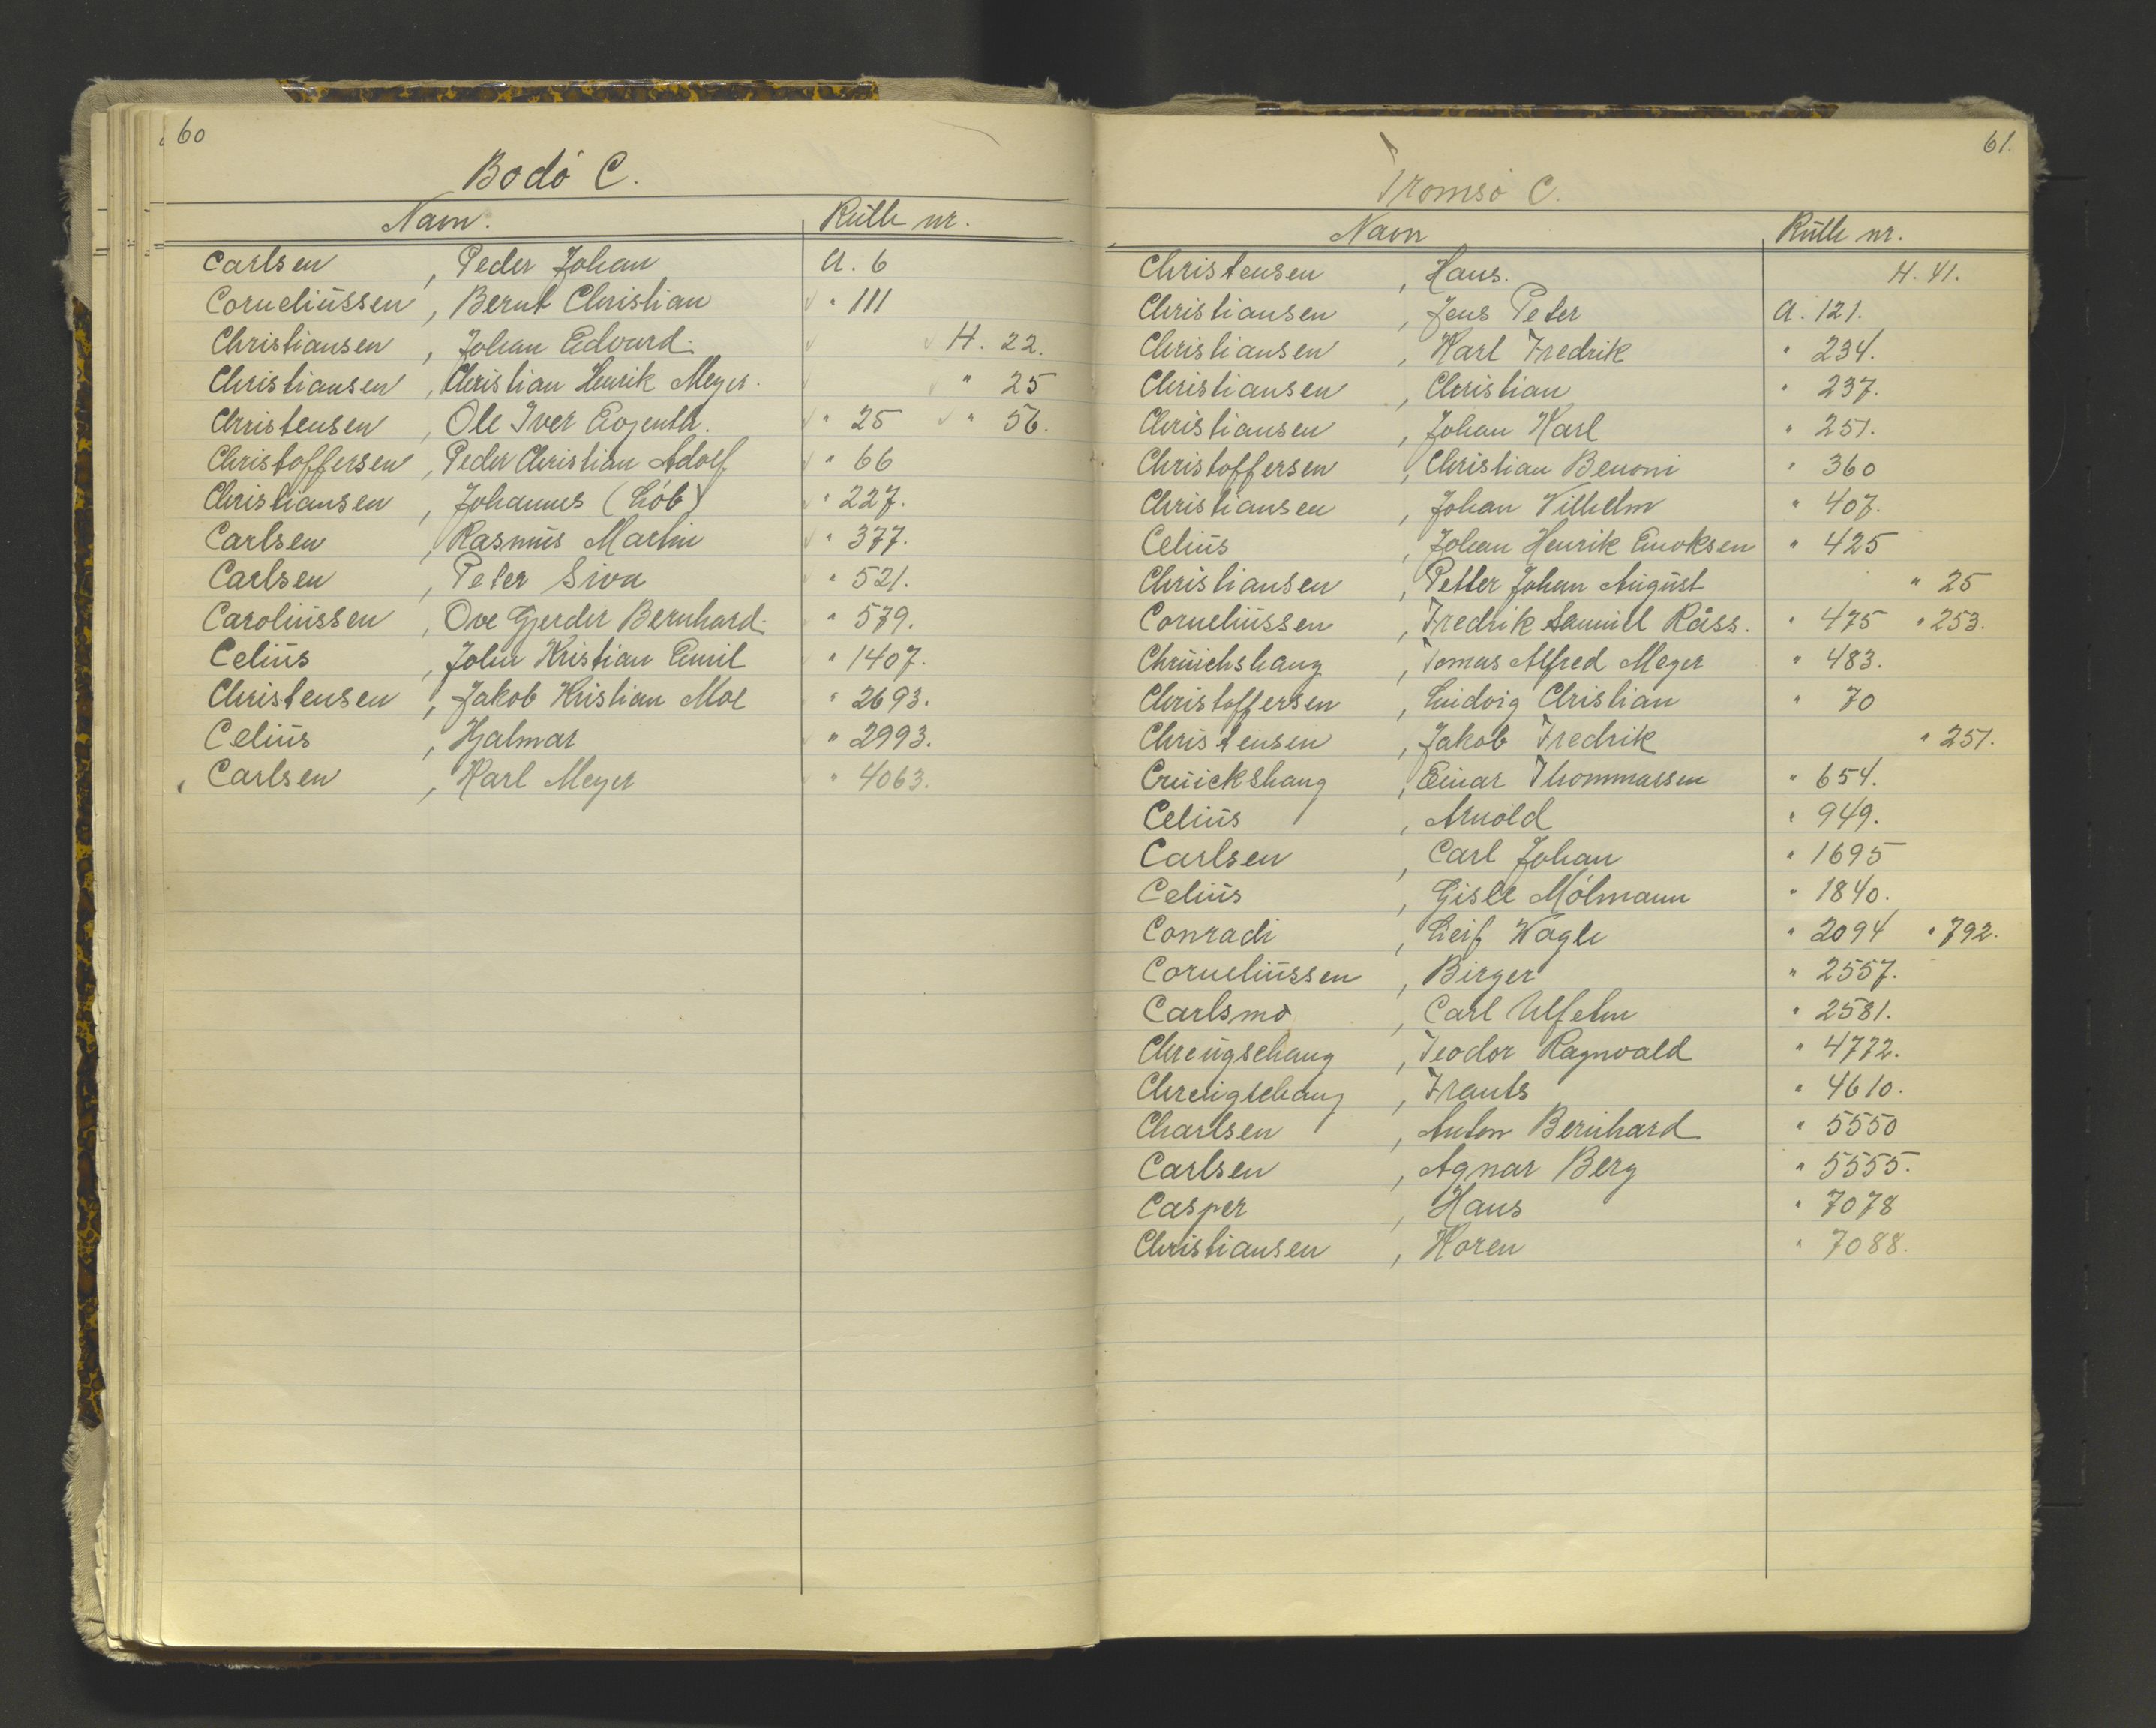 60
Bodø C.
Navn. Rulle nr.
Carlsen , Peder Johan A. 6
Corneliussen , Bernt Christian " 111
Christiansen , Johan Edvard. H. 22.
Christiansen , Christian Henrik Meyer. " 25
Christensen , Ole Iver " 25 " 56.
Christoffersen , Peder Christian Adolf " 66
Christiansen , Johannes (Løb) " 227.
Carlsen , Rasmus Martin " 377.
Carlsen , Peter Siva " 521.
Caroliussen , Ove Gjerder Bernhard. " 579.
Celius , John Kristian Emil " 1407.
Christensen , Jakob Kristian Moe " 2693.
Celius , Hjalmar " 2993.
Carlsen , Karl Meyer " 4063.
61.
Tromsø C.
Navn Rulle nr.
Christensen , Hans. H. 41.
Christiansen , Jens Peter A. 121.
Christiansen , Karl Fredrik " 234.
Christiansen , Christian " 237.
Christiansen , Johan Karl " 251.
Christoffersen , Christian Benoni " 360
Christiansen , Johan Vilhelm " 407.
Celius , Johan Henrik Enoksen " 425
Christiansen , Petter Johan August " 25
Corneliussen , Fredrik Samuel Råss. " 475 " 253.
Chruichshang , Tomas Alfred Meyer " 483.
Christoffersen , Ludvig Christian " 70
Christensen , Jakob Fredrik " 251.
Cruickshang , Einar Thommassen " 654.
Celius , Arnold " 949.
Carlsen , Carl Johan " 1695
Celius , Gisle Mølmann " 1840.
Conradi , Leif Wagle " 2094 " 792.
Corneliussen , Birger " 2557.
Carlsmo , Carl Ulfelm " 2581.
Chreugschang , Teodor Ragnvald " 4772.
Chreigschang , Frants " 4610.
Charlsen , Anton Bernhard " 5550
Carlsen , Agnar Berg " 5555.
Casper , Hans " 7078
Christiansen , Koren " 7088.